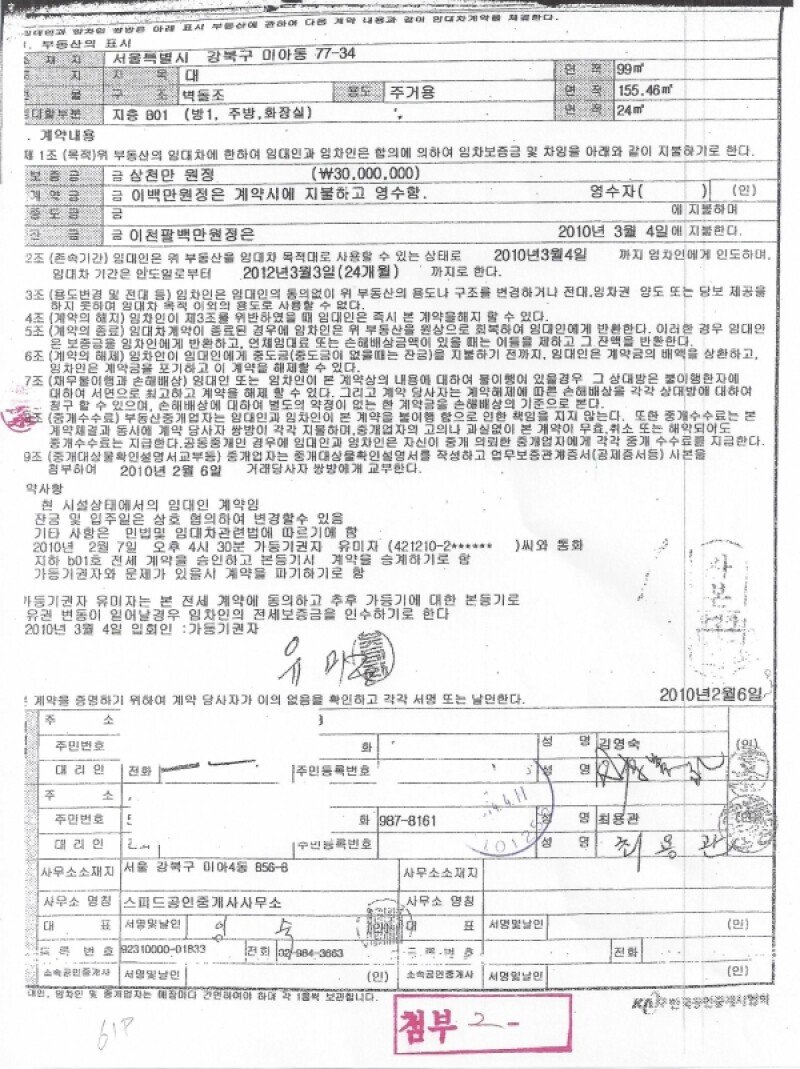 임대인과 임차인 쌍방은 아래 표시 부동산에 관하여 다음 계약 내용과 같이 임대차계약을 체결한다.
. 부동산의 표시
소 재 지 서울특별시 강북구 미아동 77-34
토 지 지 목 대 면 적 99㎡
건 물 구 조 벽돌조 용도 주거용 면 적 155.46㎡
임대할부분 지층 B01 (방1, 주방,화장실) 면 적 24㎡
. 계약내용
제 1조 (목적)위 부동산의 임대차에 한하여 임대인과 임차인은 합의에 의하여 임차보증금 및 차임을 아래와 같이 지불하기로 한다.
보 증 금 금 삼천만 원정 (₩30,000,000)
계 약 금 금 이백만원정은 계약시에 지불하고 영수함. 영수자( ) (인)
중 도 금 금 에 지불하며
잔 금 금 이천팔백만원정은 2010년 3월 4에 지불한다
2조 (존속기간) 임대인은 위 부동산을 임대차 목적대로 사용할 수 있는 상태로 2010년3월4일 까지 임차인에게 인도하며,
임대차 기간은 인도일로부터 2012년3월3일(24개월) 까지로 한다.
3조 (용도변경 및 전대 등) 임차인은 임대인의 동의없이 위 부동산의 용도나 구조를 변경하거나 전대,임차권 양도 또는 담보 제공을
하지 못하며 임대차 목적 이외의 용도로 사용할 수 없다.
4조 (계약의 해지) 임차인이 제3조를 위반하였을 때 임대인은 즉시 본 계약을해지 할 수 있다.
5조 (계약의 종료) 임대차계약이 종료된 경우에 임차인은 위 부동산을 원상으로 회복하여 임대인에게 반환한다. 이러한 경우 임대인
은 보증금을 임차인에게 반환하고, 연체임대료 또는 손해배상금액이 있을 때는 이들을 제하고 그 잔액을 반환한다.
6조 (계약의 해제) 임차인이 임대인에게 중도금(중도금이 없을때는 잔금)을 지불하기 전까지, 임대인은 계약금의 배액을 상환하고,
임차인은 계약금을 포기하고 이 계약을 해제할 수 있다.
7조 (채무불이행과 손해배상) 임대인 또는 임차인이 본 계약상의 내용에 대하여 불이행이 있을경우 그 상대방은 불이행한자에
대하여 서면으로 최고하고 계약을 해제 할 수 있다. 그리고 계약 당사자는 계약해제에 따른 손해배상을 각각 상대방에 대하여
청구 할 수 있으며, 손해배상에 대하여 별도의 약정이 없는 한 계약금을 손해배상의 기준으로 본다.
조 (중개수수료) 부동산중개업자는 임대인과 임차인이 본 계약을 불이행 함으로 인한 책임을 지지 않는다. 또한 중개수수료는 본
계약체결과 동시에 계약 당사자 쌍방이 각각 지불하며,중개업자의 고의나 과실없이 본 계약이 무효,취소 또는 해약되어도
중개수수료는 지급한다.공동중개인 경우에 임대인과 임차인은 자신이 중개 의뢰한 중개업자에게 각각 중개 수수료를 지급한다.
9조 (중개대상물확인설명서교부등) 중개업자는 중개대상물확인설명서를 작성하고 업무보증관계증서(공제증서등) 사본을
첨부하여 2010년 2월 6일 거래당사자 쌍방에게 교부한다.
약사항
현 시설상태에서의 임대인 계약임
잔금 및 입주일은 상호 협의하여 변경할수 있음
기타 사항은 민법및 임대차관련법에 따르기에 함
2010년 2월 7일 오후 4시 30분 가등기권자 유미자 (421210-2****** )씨와 통화
지하 b01호 전세 계약을 승인하고 본등기시 계약을 승계하기로 함
가등기권자와 문제가 있을시 계약을 파기하기로 함
가등기권자 유미자는 본 전세 계약에 동의하고 추후 가등기에 대한 본등기로
유권 변동이 일어날경우 임차인의 전세보증금을 인수하기로 한다
2010년 3월 4일 입회인 :가등기권자
유 미
계약을 증명하기 위하여 계약 당사자가 이의 없음을 확인하고 각각 서명 또는 날인한다. 2010년2월6일
주 소
주민번호 화 성 명 김영숙 (인)
대 리 인 전화 주민등록번호 성 명
주 소
주민번호 화 987-8161 성 명 최용관
대 리 인 주민등록번호 성 명 최 용 관
사무소소재지 서울 강북구 미아4동 856-8 사무소소재지
사무소 명칭 스피드공인중개사사무소 사무소 명칭
대 표 서명및날인 대 표 서명및날인 (인)
등 록 번 호 92310000-01833 전화 02-984-3863 등 록 번 호 전화
소속공인중개사 서명및날인 (인) 소속공인중개사 서명및날인 (인)
대인, 임차인 및 중개업자는 매장마다 간인하여야 하며 각 1통씩 보관합니다.
한국공인중개사협회
첨부 2-
61P